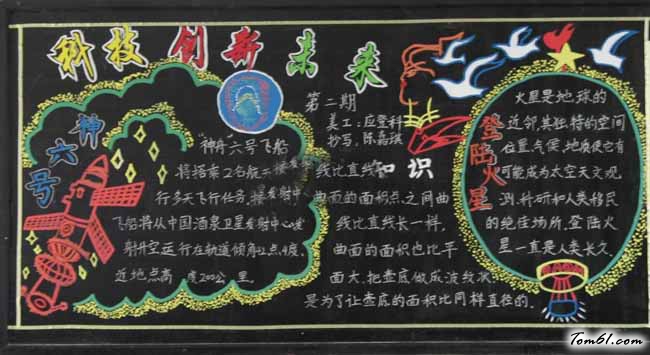 科技创新未来
神六号
"神舟"六号飞船
将搭乘2名航
行多天飞行任务,
飞船将从中国酒泉卫星发射中心发
射升空运行在轨道倾角42点4度,
近地点高 度200公里.
第二期
美工:应登科
抄写:陈嘉琪
知识
线比直线
曲面的面积点.之间曲
线比直线长一样,
曲面的面积也比平
面大.把壶底做成波纹状
是为了让壶底的面积比同样直径的.
登陆火星
火星是地球的
近邻.其独特的空间
位置,气候,地质使它有
可能成为太空天文观
测.科研和人类移民
的绝佳场所.登陆火
星一直是人类长久.
Tom61.com